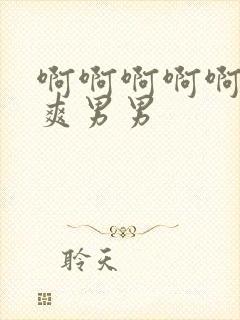 啊啊啊啊啊
爽男男
聆天